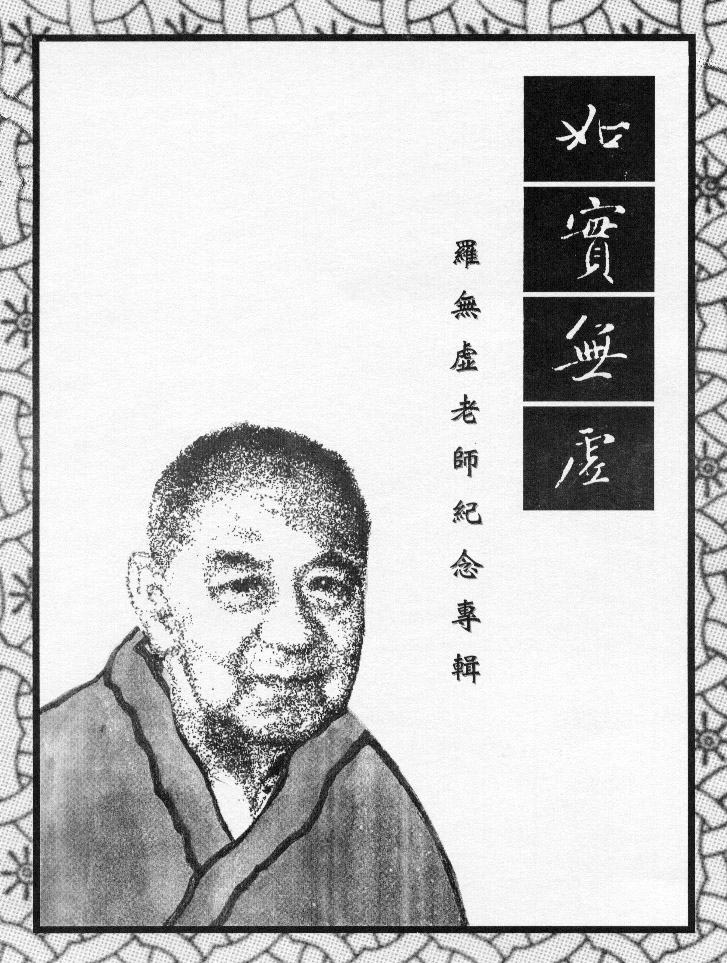 如實無虛
羅無虛老師紀念專輯